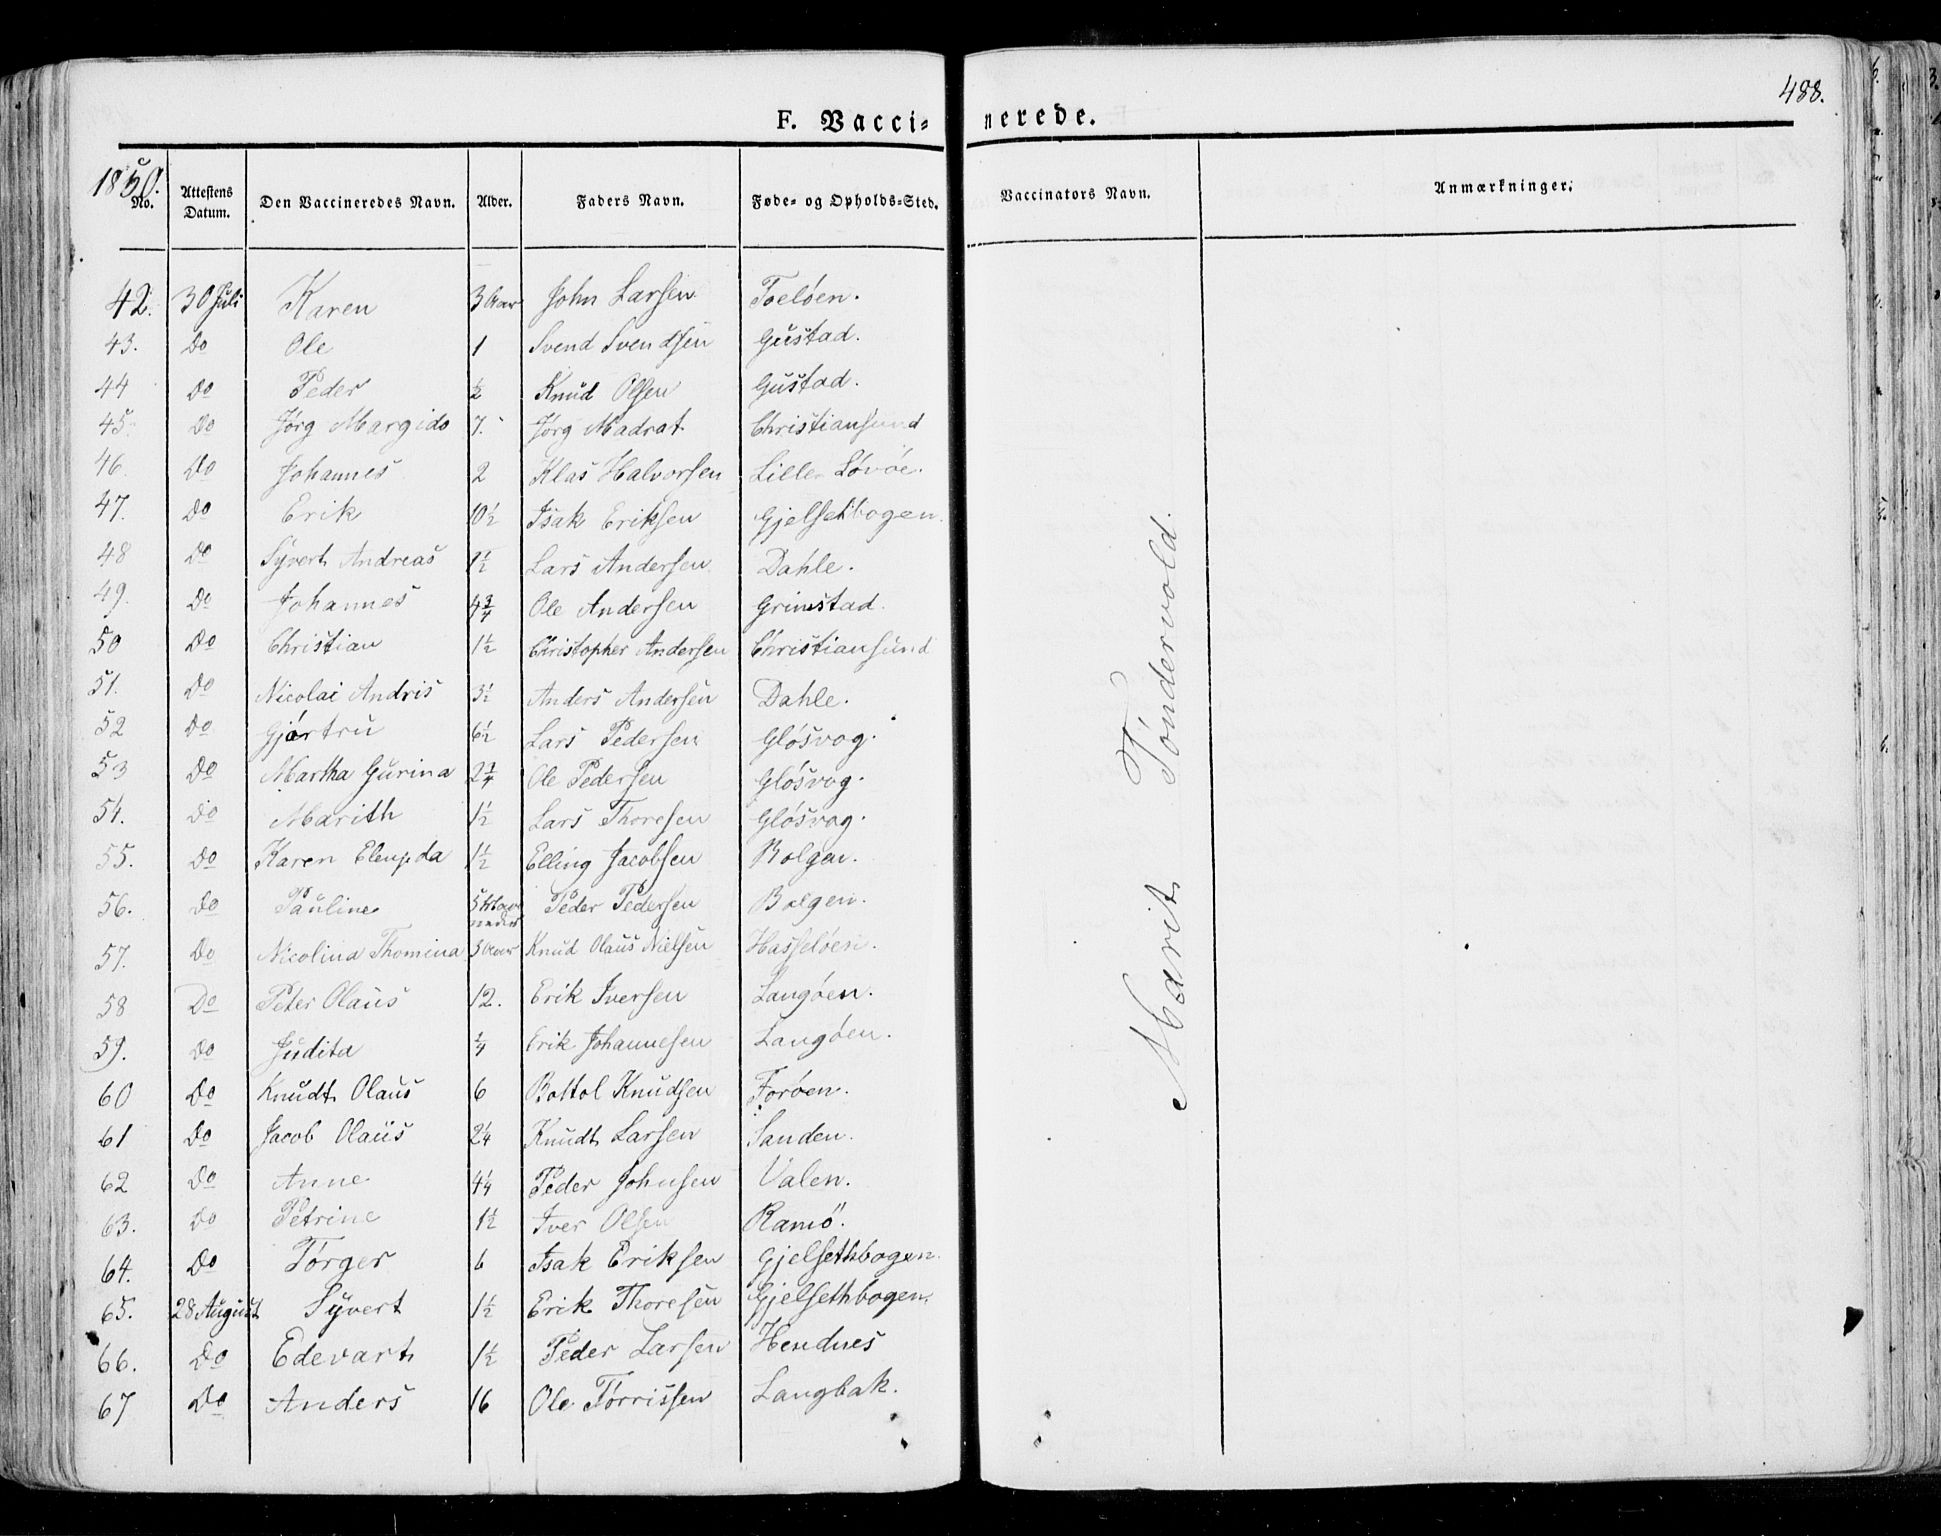 488.
F. Vacci- nerede.
1850.
No. Attestens Datum. Den Vaccineredes Navn. Alder. Faders Navn. Føde- og Opholds-Sted. Vaccinators Navn. Anmærkninger.
42. 30 Juli Karen 3 Aar John Larsen Toeløen.
43. Do Ole 1 Svend Svendsen Gustad.
44 Do Peder ½ Knud Olsen Gustad.
45. Do Jørg Margido 7. Jørg Madrat Christiansund
46. Do Johannes 2 Klas Halvorsen Lille Løvøe.
47. Do Erik 10½ Isak Eriksen Gjelsethbogen.
48 Do Syvert Andreas 1½ Lars Andersen Dahle.
49. Do Johannes 4¾ Ole Andersen Grimstad.
50 Do Christian 1½ Christopher Andersen Christiansund
51. Do Nicolai Andris 3½ Anders Andersen Dahle.
52 Do Gjørtru 6½ Lars Pedersen Gløsvog.
53 Do Martha Gurina 2¼ Ole Pedersen Gløsvog.
54. Do Marith 1½ Lars Thoresen Gløsvog.
55. Do Karen 1½ Elling Jacobsen Bolgen.
56. Do Pauline 5 Maaneder Peder Pedersen Bolgen.
57. Do Nicolina Thomina 3 Aar Knud Olaus Nielsen Hasseløen.
58 Do Peter Olaus 12. Erik Iversen Langøen.
59. Do Judita ¼ Erik Johannesen Langøen.
60 Do Knudt Olaus 6 Bottol Knudsen Forøen.
61 Do Jacob Olaus 2¼ Knudt Larsen Sanden.
62 Do Anne 4¼ Peder Johnsen Valen.
63. Do Petrine 1½ Iver Olsen Ramö.
64. Do Törger 6 Isak Eriksen Gjelsethbogen.
65. 28 August Syvert 1½ Erik Thoresen Gjelsethbogen.
66. Do Edevart 1½ Peder Larsen Hendnes
67 Do Anders 16 Ole Torrissen Langbak.
Marit Tøndervold.